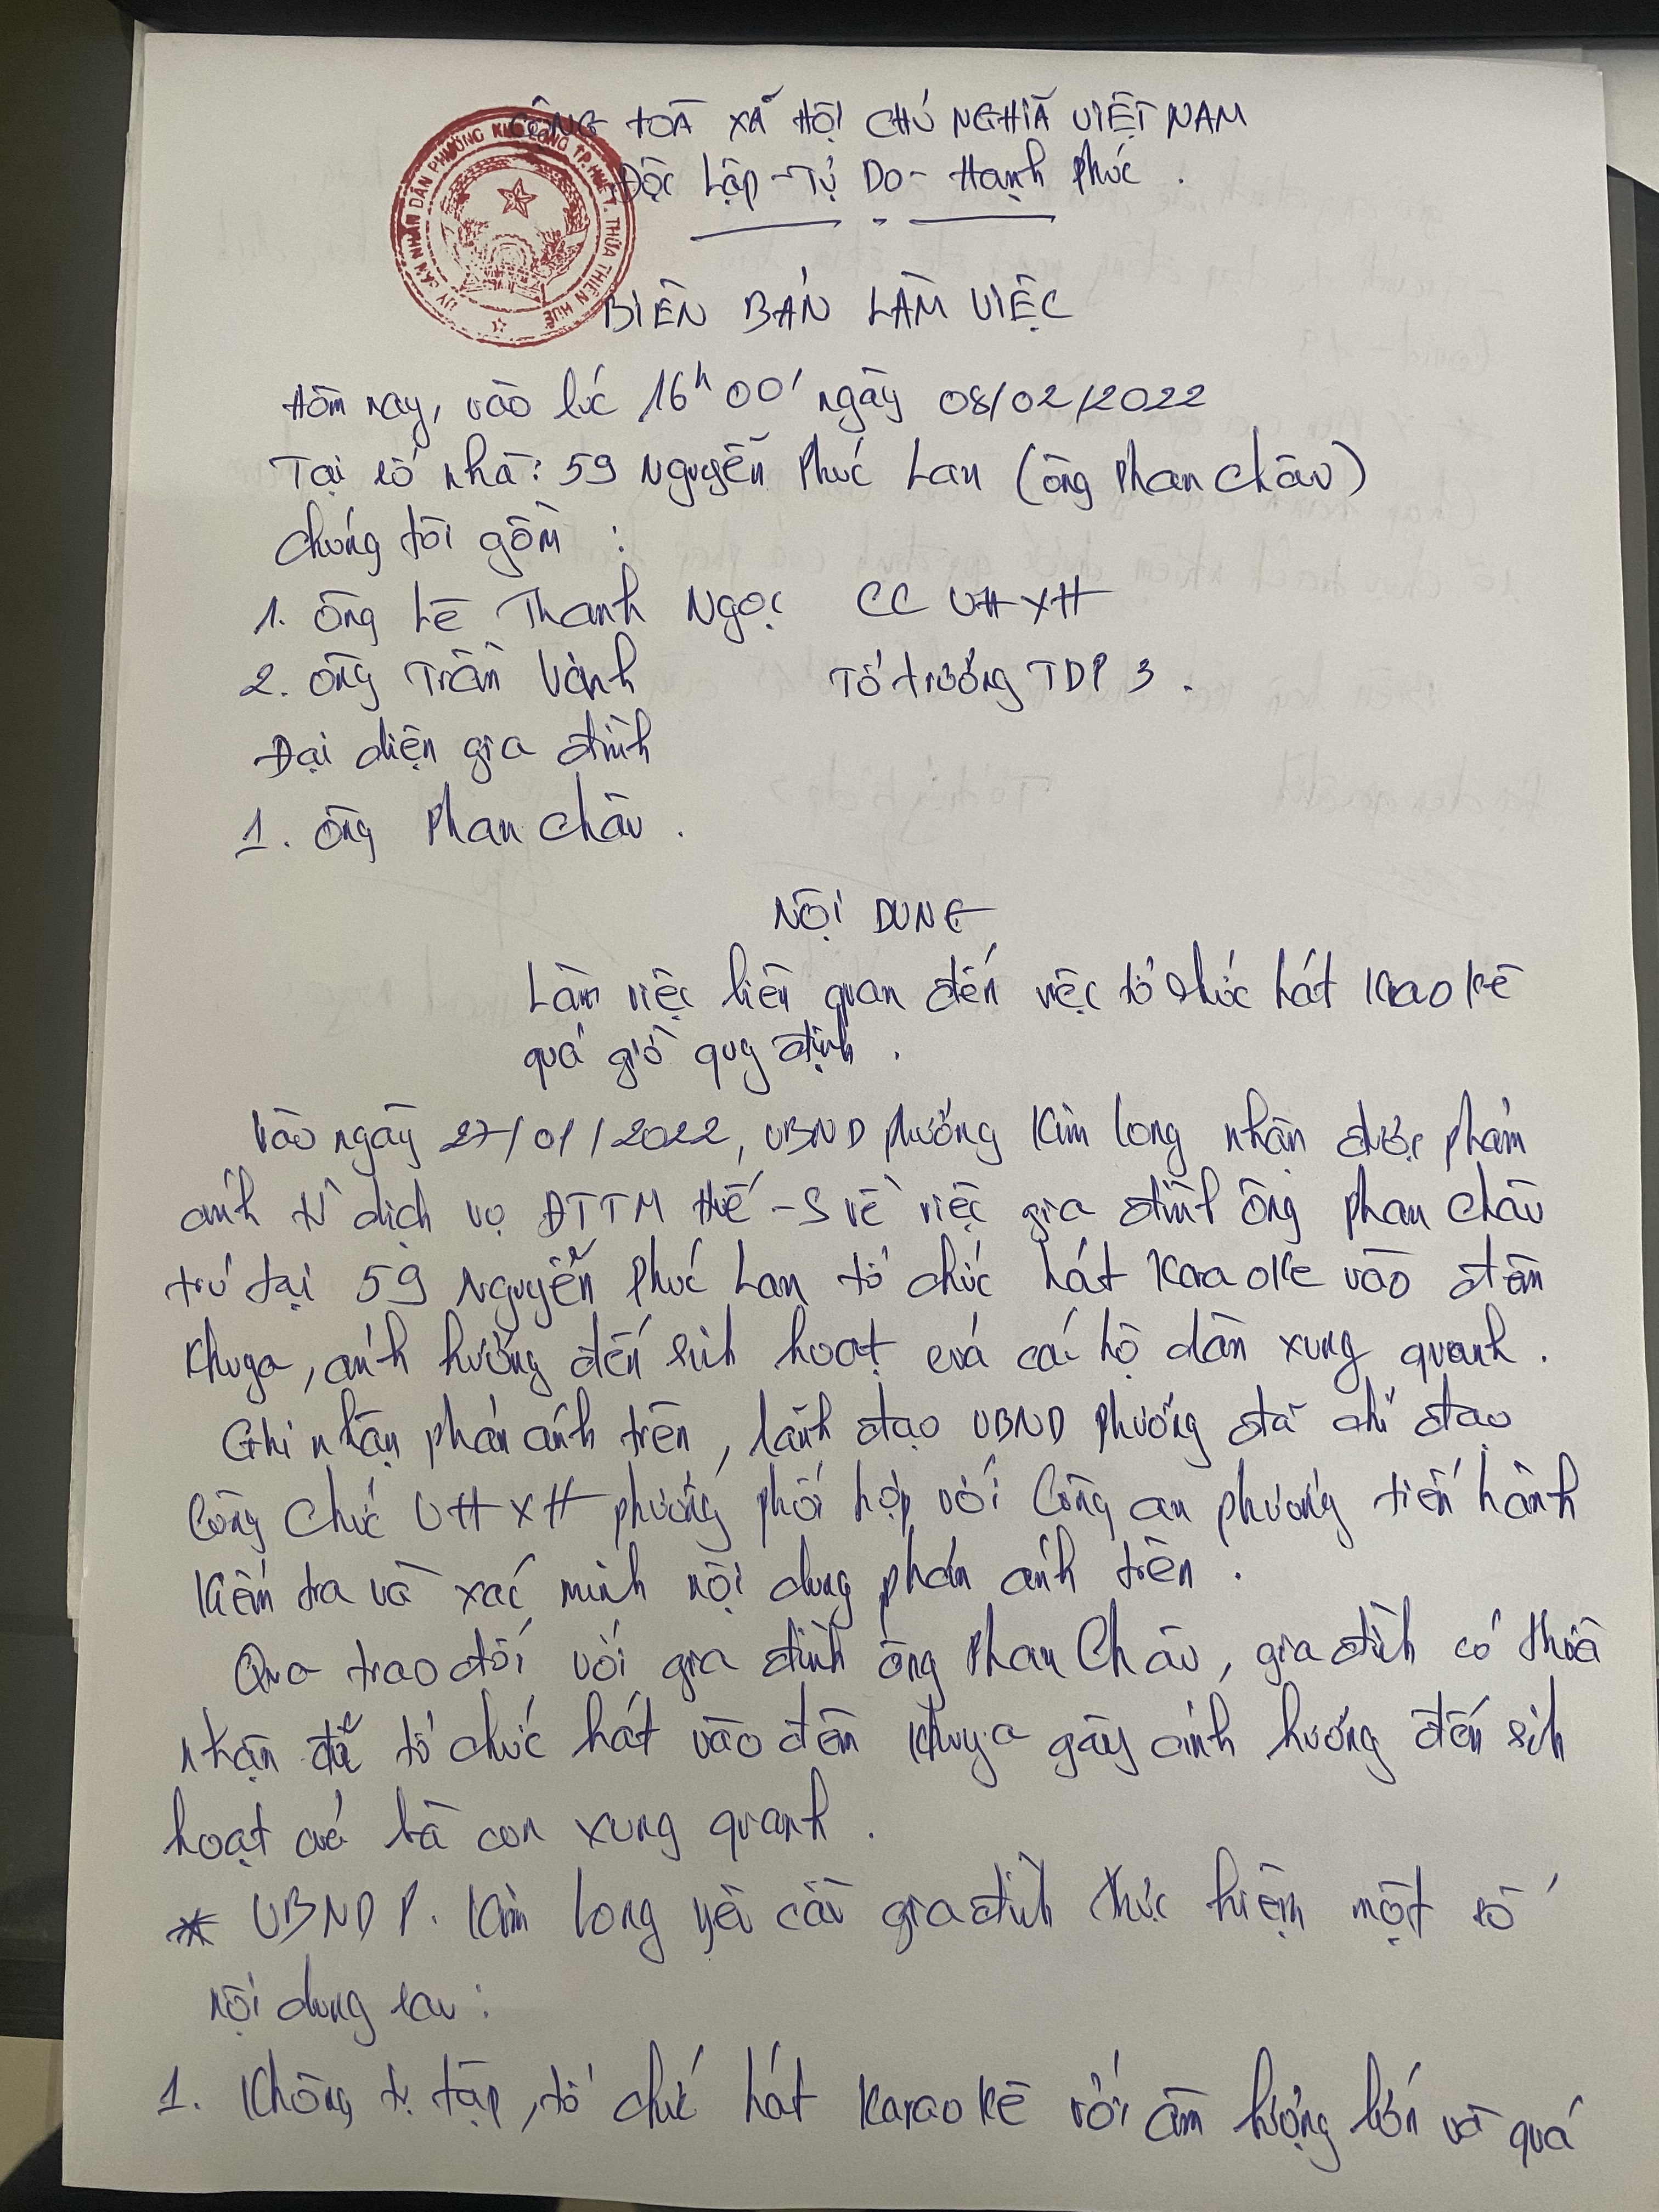 CỘNG HOÀ XÃ HỘI CHỦ NGHĨA VIỆT NAM
Độc Lập - Tự Do - Hạnh Phúc.
ỦY BAN NHÂN DÂN PHƯỜNG KIM LONG TP.HUẾ T. THỪA THIÊN HUẾ
BIÊN BẢN LÀM VIỆC
Hôm nay, vào lúc 16h00' ngày 08/02/2022
Tại số nhà: 59 Nguyễn Phúc Lan (ông Phan Châu)
Chúng tôi gồm:
1. Ông Lê Thanh Ngọc CC VHXH
2. Ông Trần Vành Tổ trưởng TDP 3.
Đại diện gia đình
1. Ông Phan Châu.
NỘI DUNG
Làm việc liên quan đến việc tổ chức hát Karaokê
quá giờ quy định.
Vào ngày 27/01/2022, UBND phường Kim Long nhận được phản
ánh từ dịch vụ ĐTTM Huế-S về việc gia đình ông Phan Châu
trú tại 59 Nguyễn Phúc Lan tổ chức hát Karaoke vào đêm
khuya, ảnh hưởng đến sinh hoạt của các hộ dân xung quanh.
Ghi nhận phản ánh trên, lãnh đạo UBND phường đã chỉ đạo
Công chức VHXH phường phối hợp với Công an phường tiến hành
kiểm tra và xác minh nội dung phản ánh trên.
Qua trao đổi với gia đình ông Phan Châu, gia đình có thừa
nhận đã tổ chức hát vào đêm khuya gây ảnh hưởng đến sinh
hoạt của bà con xung quanh.
* UBND P. Kim Long yêu cầu gia đình thực hiện một số
nội dung sau:
1. Không tụ tập, tổ chức hát Karaokê với âm lượng lớn và quá